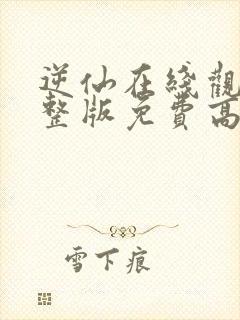 逆仙在綫觀
整版免費高
雪下痕